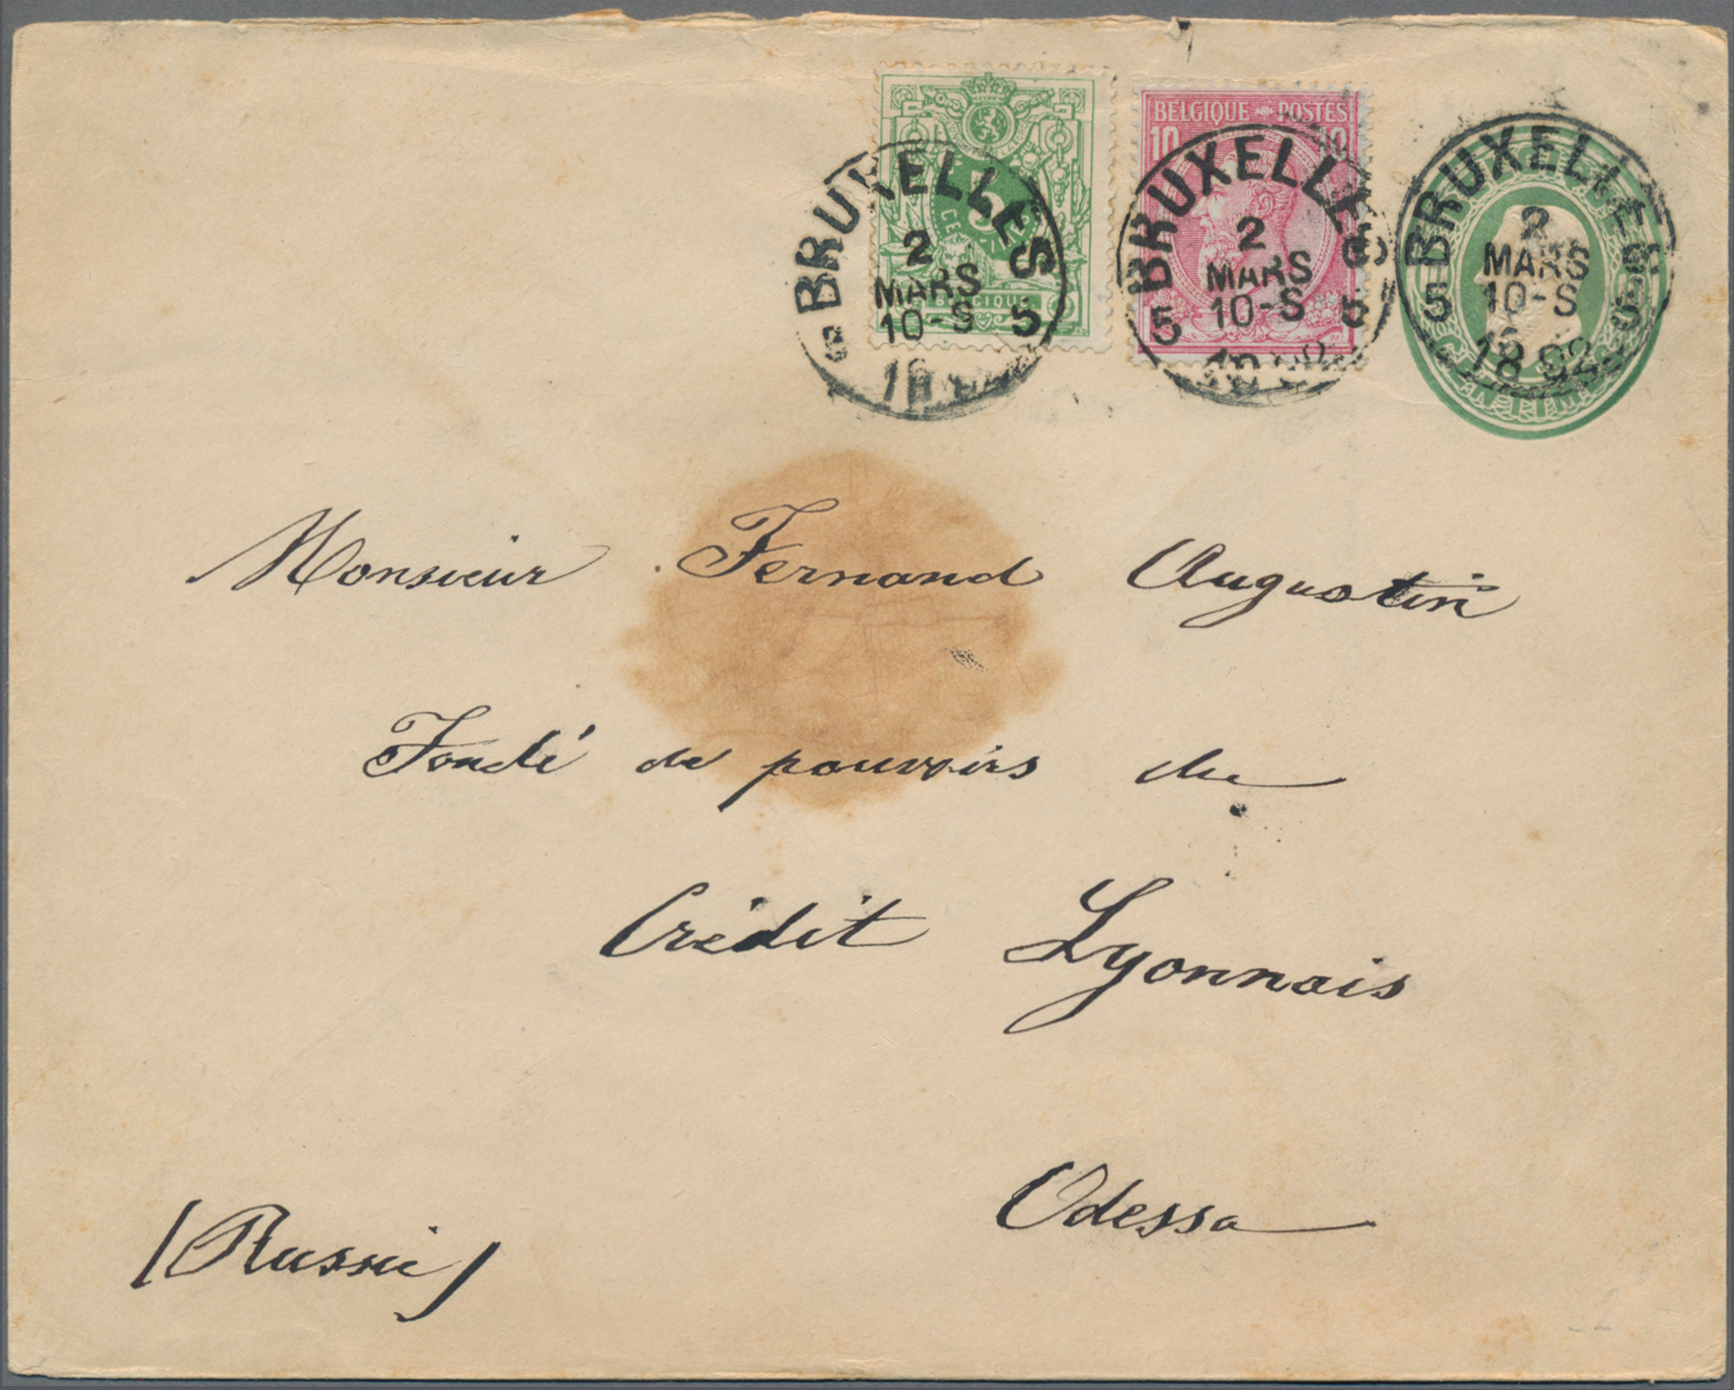 BELGIQUE POSTES
10 10
5
CE
BELGIQUE
BRUXELLES
2
MARS
10-S
5
BRUXELLES
5 5
2
MARS
10-S
BRUXELLES
5 5
2
MARS
10-S
1892
CENTIMES
Monsieur Fernand Augustin
Fondé de pouvoirs du
Crédit Lyonnais
Odessa
(Russie)